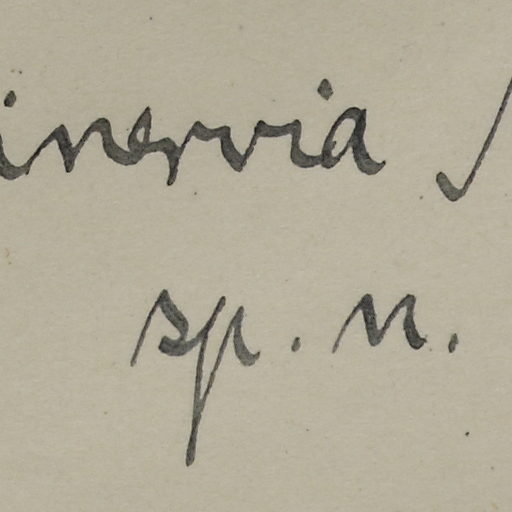 inervia
sp. n.